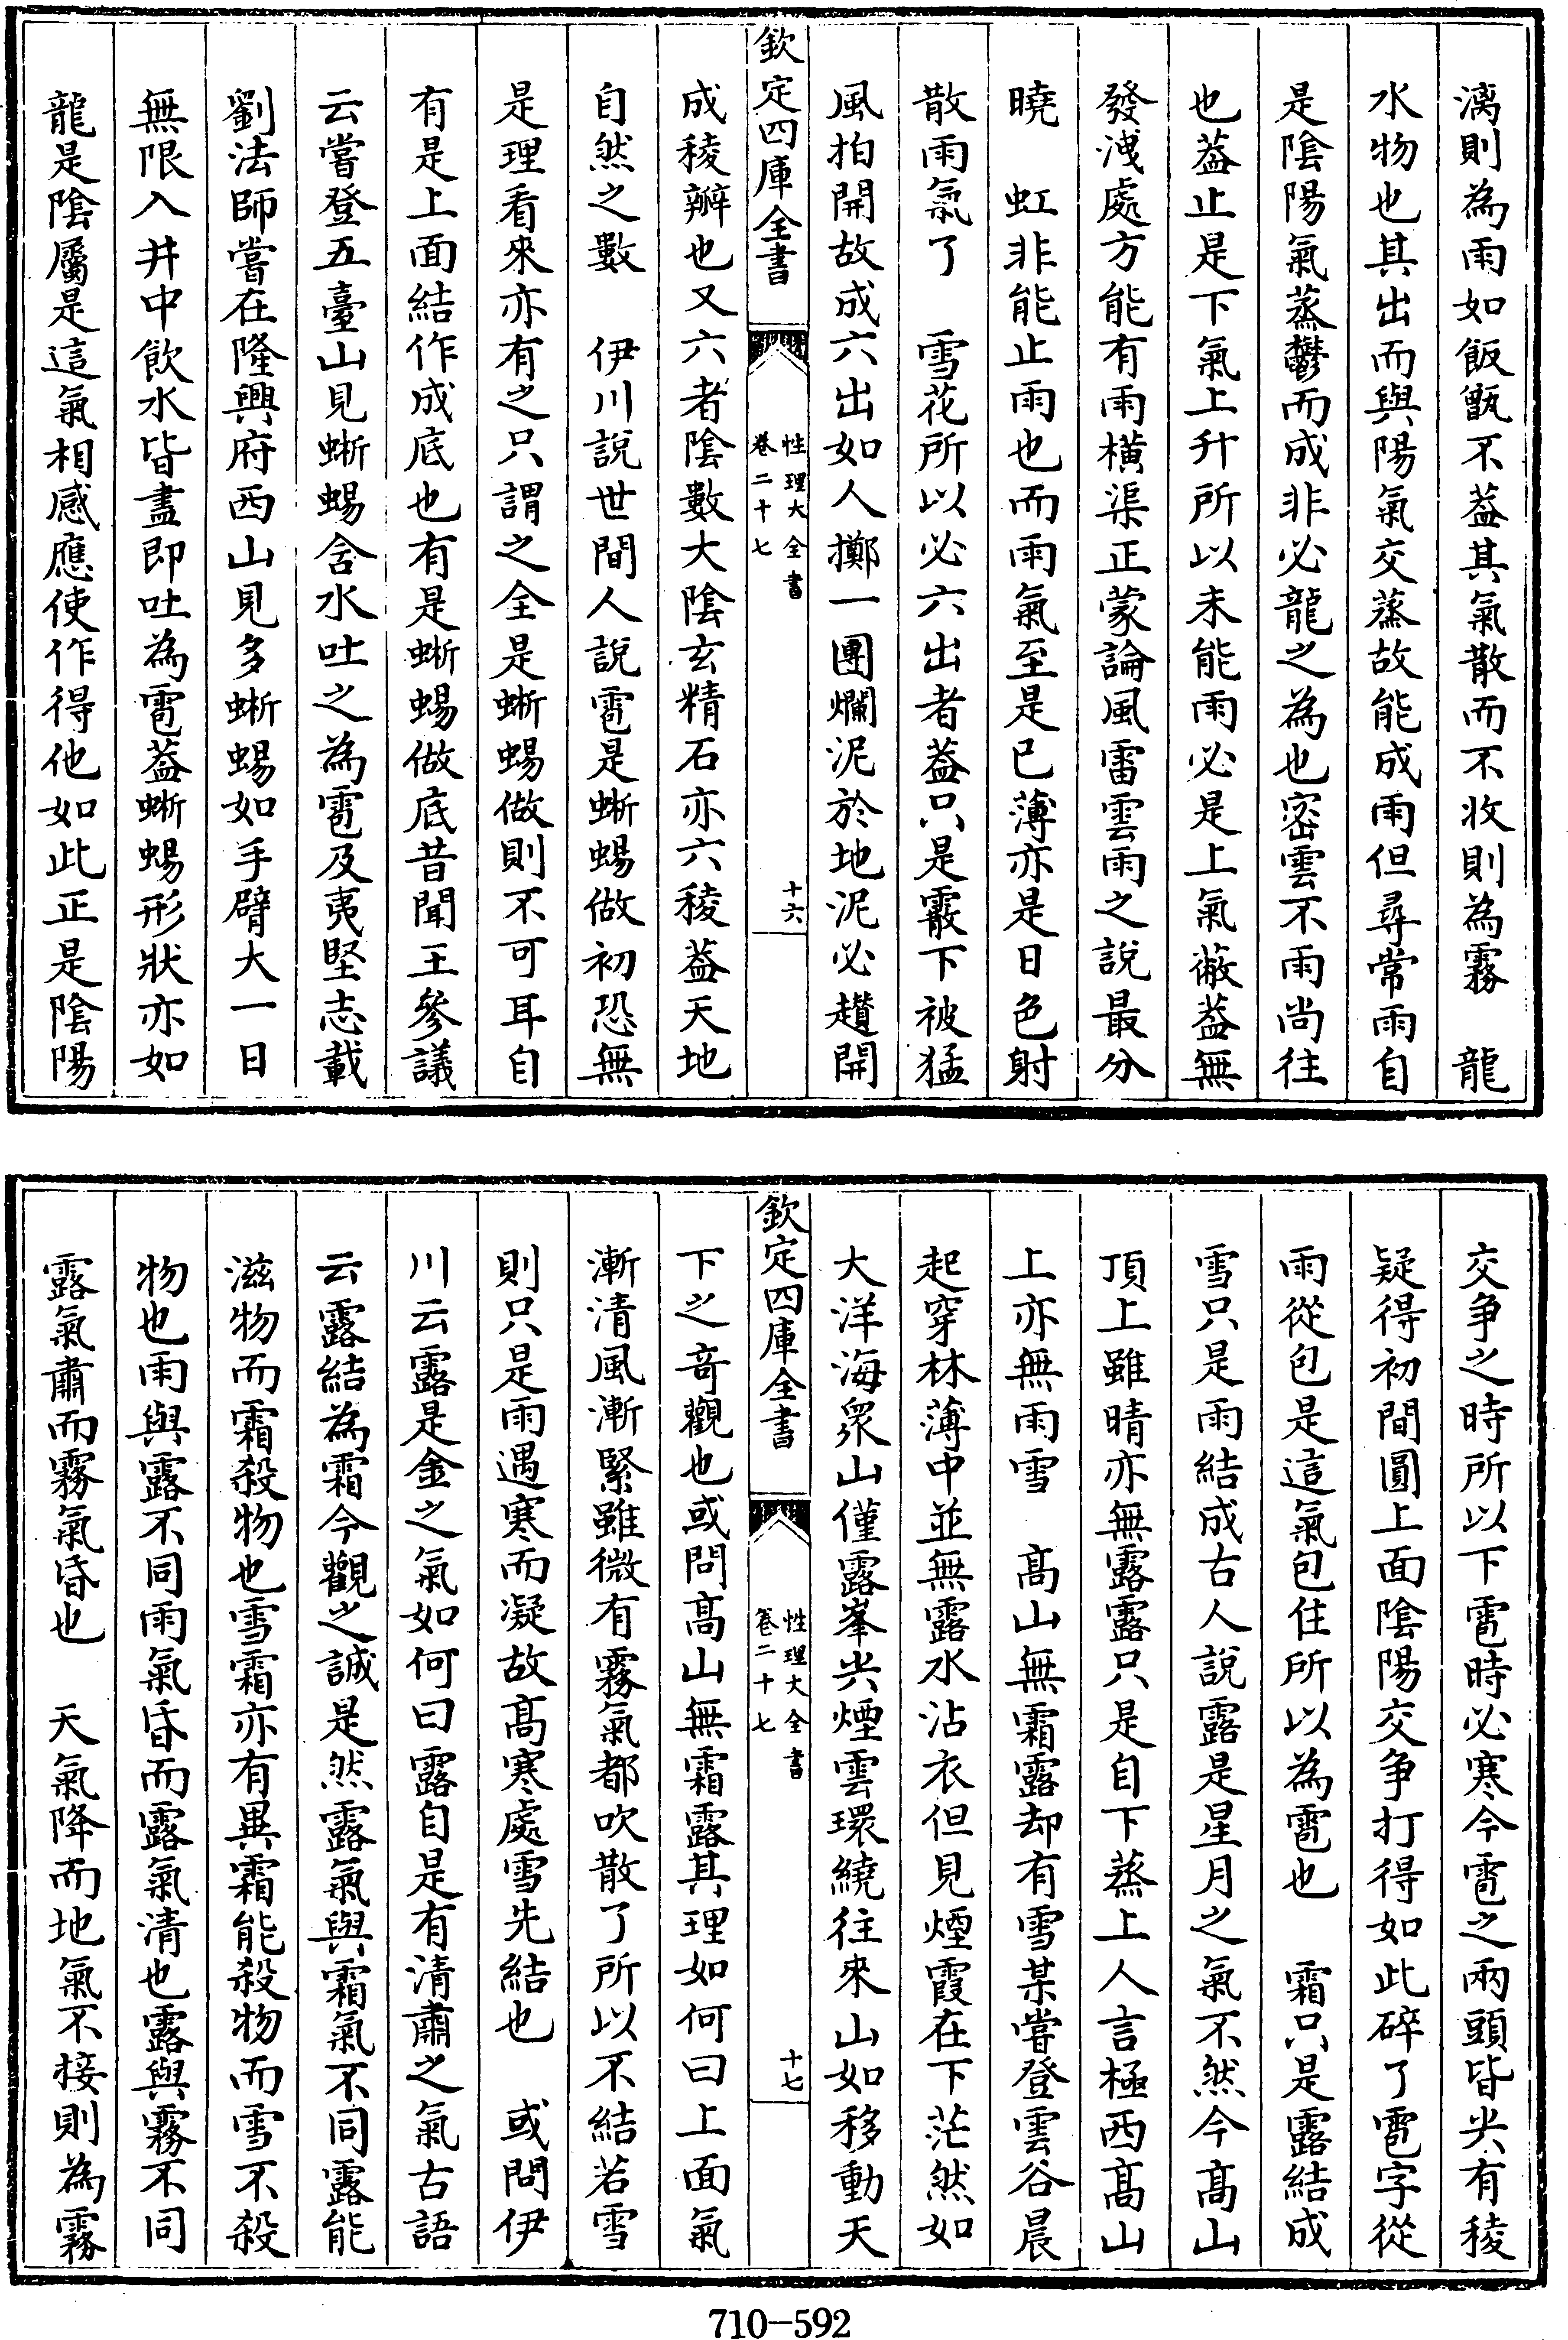 漓則為雨如飯甑不葢其氣散而不收則為霧　龍
水物也其出而與陽氣交蒸故能成雨但尋常雨自
是隂陽氣蒸鬱而成非必龍之為也密雲不雨尚往
也葢止是下氣上升所以未能雨必是上氣蔽葢無
發洩處方能有雨橫渠正蒙論風雷雲雨之說最分
曉　虹非能止雨也而雨氣至是已薄亦是日色射
散雨氣了　雪花所以必六出者葢只是霰下被猛
風拍開故成六出如人擲一團爛泥於地泥必趲開
欽定四庫全書
性理大全書
卷二十七
十六
成稜瓣也又六者隂數大隂玄精石亦六稜葢天地
自然之數　伊川說世間人說雹是蜥蜴做初恐無
是理看來亦有之只謂之全是蜥蜴做則不可耳自
有是上面結作成底也有是蜥蜴做底昔聞王參議
云嘗登五臺山見蜥蜴含水吐之為雹及夷堅志載
劉法師嘗在隆興府西山見多蜥蜴如手臂大一日
無限入井中飲水皆盡即吐為雹葢蜥蜴形狀亦如
龍是隂屬是這氣相感應使作得他如此正是隂陽
交争之時所以下雹時必寒今雹之兩頭皆尖有稜
疑得初間圓上面隂陽交争打得如此碎了雹字從
雨從包是這氣包住所以為雹也　霜只是露結成
雪只是雨結成古人說露是星月之氣不然今髙山
頂上雖晴亦無露露只是自下蒸上人言極西髙山
上亦無雨雪　髙山無霜露却有雪某嘗登雲谷晨
起穿林薄中並無露水沾衣但見煙霞在下茫然如
大洋海衆山僅露峯尖煙雲環繞往來山如移動天
欽定四庫全書
性理大全書
卷二十七
十七
下之竒觀也或問髙山無霜露其理如何曰上面氣
漸清風漸緊雖微有霧氣都吹散了所以不結若雪
則只是雨遇寒而凝故髙寒處雪先結也　或問伊
川云露是金之氣如何曰露自是有清肅之氣古語
云露結為霜今觀之誠是然露氣與霜氣不同露能
滋物而霜殺物也雪霜亦有異霜能殺物而雪不殺
物也雨與露不同雨氣昏而露氣清也露與霧不同
露氣肅而霧氣昏也　天氣降而地氣不接則為霧
710-592